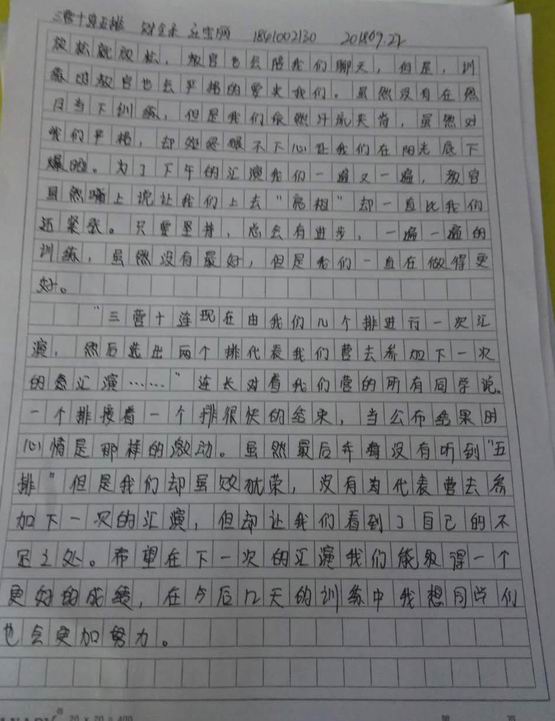 三营十连五排 财金系 1841002130 2018.09.22
放松就放松，教官也会陪我们聊天，但是，训
练的教官也会严格的要求我们。虽然没有在烈
日当下训练，但是我们依然汗流夹背，虽然对
我们严格，却始终狠不下心让我们在阳光底下
爆晒。为了下午的汇演我们一遍又一遍，教官
虽然嘴上说让我们上去“亮相”却一直比我们
还紧张。只要坚持，总会有进步，一遍一遍的
训练，虽然没有最好，但是我们一直在做得更
好。
“三营十连现在由我们几个排进行一次汇
演，然后选出两个排代表我们营去参加下一次
的总汇演……”连长对着我们营的所有同学说。
一个排接着一个排很快的结束，当公布结果时
心情是那样的激动。虽然最后并没有听到“五
排”但是我们却虽败犹荣，没有为代表营去参
加下一次的汇演，但却让我们看到了自己的不
足之处。希望在下一次的汇演我们能取得一个
更好的成绩，在今后几天的训练中我想同学们
也会更加努力。
20 x 20 = 400